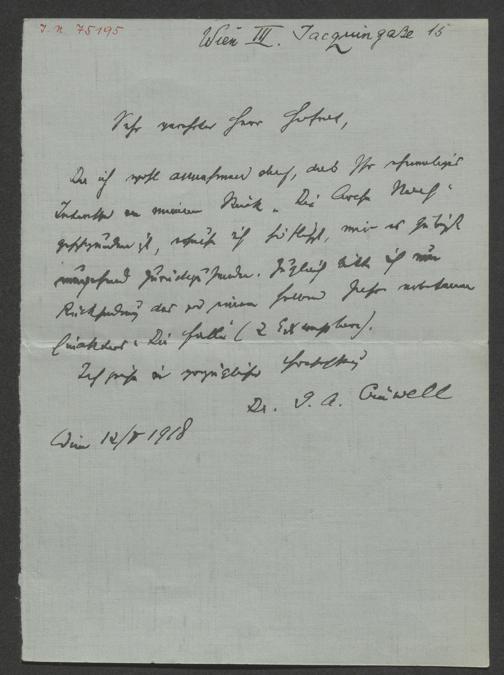 J. N. 75195
Wien III. Jacquingaße 15
Sehr verehrter Herr Hofrat,
Da ich wohl annehmen darf, daß Ihr ehemaliges
Interesse an meinem Stück „Die Arche Noah“
geschwunden ist, ersuche ich höflichst, mir es gütigst
umgehend zurückzusenden. Zugleich bitte ich um
Rücksendung des vor einem halben Jahr
Einakters: Die Falle (2 Exemplare).
Ich zeichne in vorzüglicher Hochachtung
Dr. J. A. Grüwell
Wien 12/V 1918